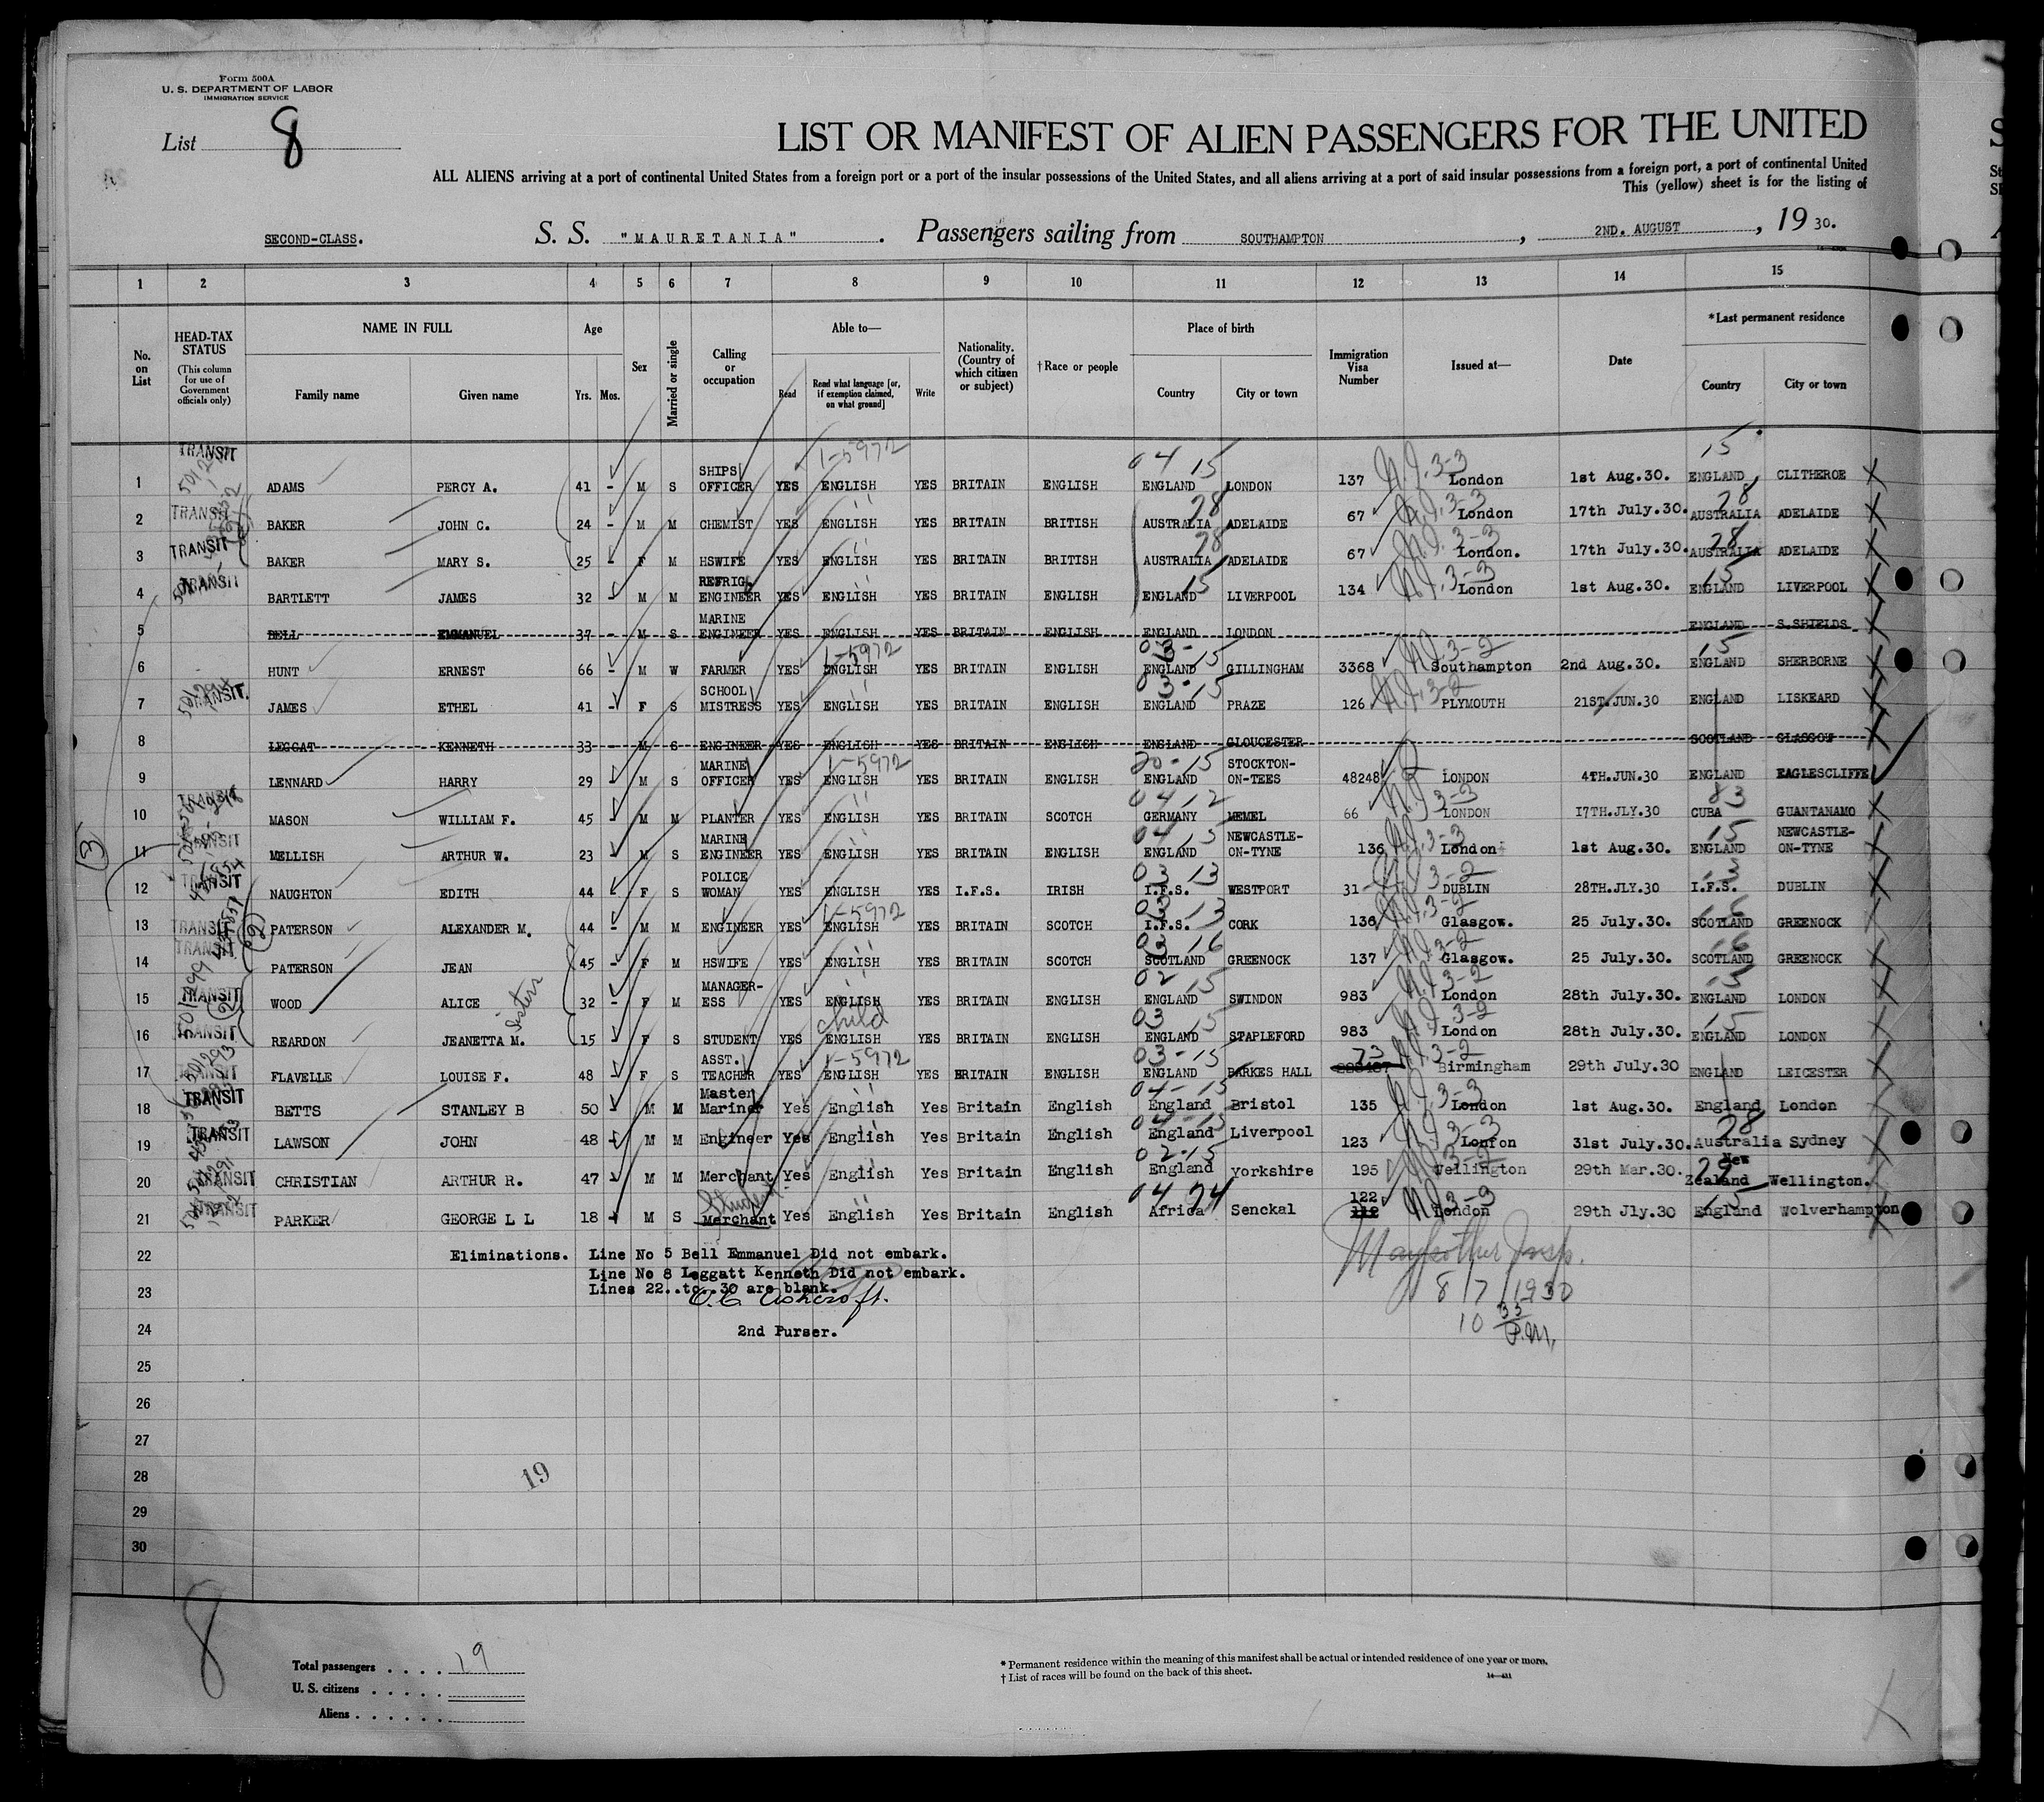 Form 500A
U. S. DEPARTMENT OF LABOR
IMMIGRATION SERVICE
List 8
LIST OR MANIFEST OF ALIEN PASSENGERS FOR THE UNITED
ALL ALIENS arriving at a port of continental United States from a foreign port or a port of the insular possessions of the United States, and all aliens arriving at a port of said insular possessions from a foreign port, a port of continental United
This (yellow) sheet is for the listing of
SECOND-CLASS. S. S. "MAURETANIA". Passengers sailing from SOUTHAMPTON, 2ND. AUGUST, 19 30.
1 2 3 4 5 6 7 8 9 10 11 12 13 14 15
No. on List
HEAD-TAX STATUS (This column for use of Government officials only)
NAME IN FULL
Family name Given name
Age
Yrs. Mos.
Sex
Married or single
Calling or occupation
Able to—
Read Read what language [or, if exemption claimed, on what ground] Write
Nationality. (Country of which citizen or subject)
†Race or people
Place of birth
Country City or town
Immigration Visa Number
Issued at—
Date
*Last permanent residence
Country City or town
1 TRANSIT ADAMS PERCY A. 41 - M S SHIPS OFFICER YES ENGLISH 1-5972 YES BRITAIN ENGLISH 04 15 ENGLAND LONDON 137 London 1st Aug.30. 15 ENGLAND CLITHEROE
2 TRANSIT BAKER JOHN C. 24 - M M CHEMIST YES ENGLISH YES BRITAIN BRITISH 28 AUSTRALIA ADELAIDE 67 London 17th July.30. 28 AUSTRALIA ADELAIDE
3 TRANSIT BAKER MARY S. 25 - F M HSWIFE YES ENGLISH YES BRITAIN BRITISH 28 AUSTRALIA ADELAIDE 67 London. 17th July.30. 28 AUSTRALIA ADELAIDE
4 TRANSIT BARTLETT JAMES 32 - M M REFRIG. ENGINEER YES ENGLISH YES BRITAIN ENGLISH 15 ENGLAND LIVERPOOL 134 London 1st Aug.30. 15 ENGLAND LIVERPOOL
5 BELL EMMANUEL 37 - M S MARINE ENGINEER YES ENGLISH YES BRITAIN ENGLISH ENGLAND LONDON ENGLAND S.SHIELDS
6 HUNT ERNEST 66 - M W FARMER YES ENGLISH 1-5972 YES BRITAIN ENGLISH 15 ENGLAND GILLINGHAM 3368 Southampton 2nd Aug.30. 15 ENGLAND SHERBORNE
7 TRANSIT. JAMES ETHEL 41 - F S SCHOOL MISTRESS YES ENGLISH YES BRITAIN ENGLISH 03-15 ENGLAND PRAZE 126 PLYMOUTH 21ST.JUN.30 ENGLAND LISKEARD
8 LEGGAT KENNETH 33 - M S ENGINEER YES ENGLISH YES BRITAIN ENGLISH ENGLAND GLOUCESTER SCOTLAND GLASGOW
9 LENNARD HARRY 29 - M S MARINE OFFICER YES ENGLISH 1-5972 YES BRITAIN ENGLISH 20-15 ENGLAND STOCKTON-ON-TEES 48248 LONDON 4TH.JUN.30 ENGLAND EAGLESCLIFFE
10 TRANSIT MASON WILLIAM F. 45 - M M PLANTER YES ENGLISH YES BRITAIN SCOTCH 04 12 GERMANY MEMEL 66 LONDON 17TH.JLY.30 83 CUBA GUANTANAMO
11 TRANSIT MELLISH ARTHUR W. 23 - M S MARINE ENGINEER YES ENGLISH YES BRITAIN ENGLISH 04 15 ENGLAND NEWCASTLE-ON-TYNE 136 London 1st Aug.30. 15 ENGLAND NEWCASTLE-ON-TYNE
12 TRANSIT NAUGHTON EDITH 44 - F S POLICE WOMAN YES ENGLISH YES I.F.S. IRISH 03 13 I.F.S. WESTPORT 31 DUBLIN 28TH.JLY.30 13 I.F.S. DUBLIN
13 TRANSIT PATERSON ALEXANDER M. 44 - M M ENGINEER YES ENGLISH 1-5972 YES BRITAIN SCOTCH 03 13 I.F.S. CORK 136 Glasgow. 25 July.30. 16 SCOTLAND GREENOCK
14 TRANSIT PATERSON JEAN 45 - F M HSWIFE YES ENGLISH YES BRITAIN SCOTCH 03 16 SCOTLAND GREENOCK 137 Glasgow. 25 July.30. 16 SCOTLAND GREENOCK
15 TRANSIT WOOD ALICE sisters 32 - F M MANAGER-ESS YES ENGLISH YES BRITAIN ENGLISH 02 15 ENGLAND SWINDON 983 London 28th July.30. 15 ENGLAND LONDON
16 TRANSIT REARDON JEANETTA M. 15 - F S STUDENT YES child ENGLISH YES BRITAIN ENGLISH 03 15 ENGLAND STAPLEFORD 983 London 28th July.30. 15 ENGLAND LONDON
17 TRANSIT FLAVELLE LOUISE F. 48 - F S ASST. TEACHER YES ENGLISH 1-5972 YES BRITAIN ENGLISH 03-15 ENGLAND BARKES HALL 73 Birmingham 29th July.30 ENGLAND LEICESTER
18 TRANSIT BETTS STANLEY B 50 - M M Master Mariner Yes English Yes Britain English 04-15 England Bristol 135 London 1st Aug.30. England London
19 TRANSIT LAWSON JOHN 48 - M M Engineer Yes English Yes Britain English 04-15 England Liverpool 123 Lonfon 31st July.30. 28 Australia Sydney
20 TRANSIT CHRISTIAN ARTHUR R. 47 M M Merchant Yes English Yes Britain English 02-15 England Yorkshire 195 Wellington 29th Mar.30. New Zealand Wellington.
21 TRANSIT PARKER GEORGE L L 18 - M S Student Merchant Yes English Yes Britain English 04 74 Africa Senckal 122 112 London 29th Jly.30 15 England Wolverhampton
22 Eliminations. Line No 5 Bell Emmanuel Did not embark.
Line No 8 Leggatt Kenneth Did not embark.
23 Lines 22..to..30 are blank.
Ashcroft.
8/7/1930
24 2nd Purser.
10 33 P.M.
25
26
27
28 19
29
30
8
Total passengers . . . . 19
U. S. citizens . . . . .
Aliens . . . . . .
* Permanent residence within the meaning of this manifest shall be actual or intended residence of one year or more.
† List of races will be found on the back of this sheet.